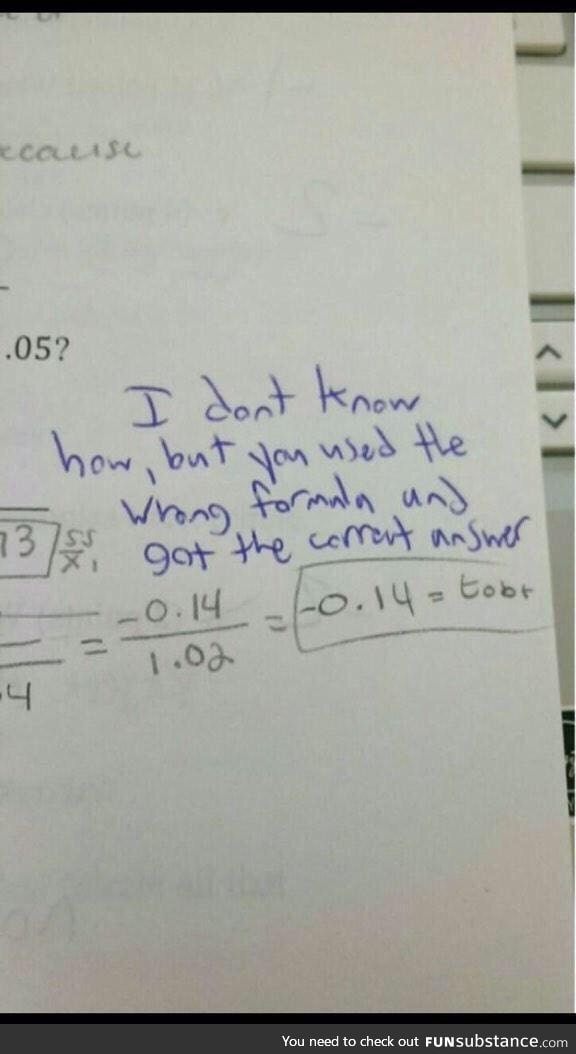 ecause
.05?
I dont know
how, but you used the
wrong formula and
got the correct answer
73
SS
X1
= -0.14 = -0.14 = tobt
1.02
.4
You need to check out FUNsubstance.com